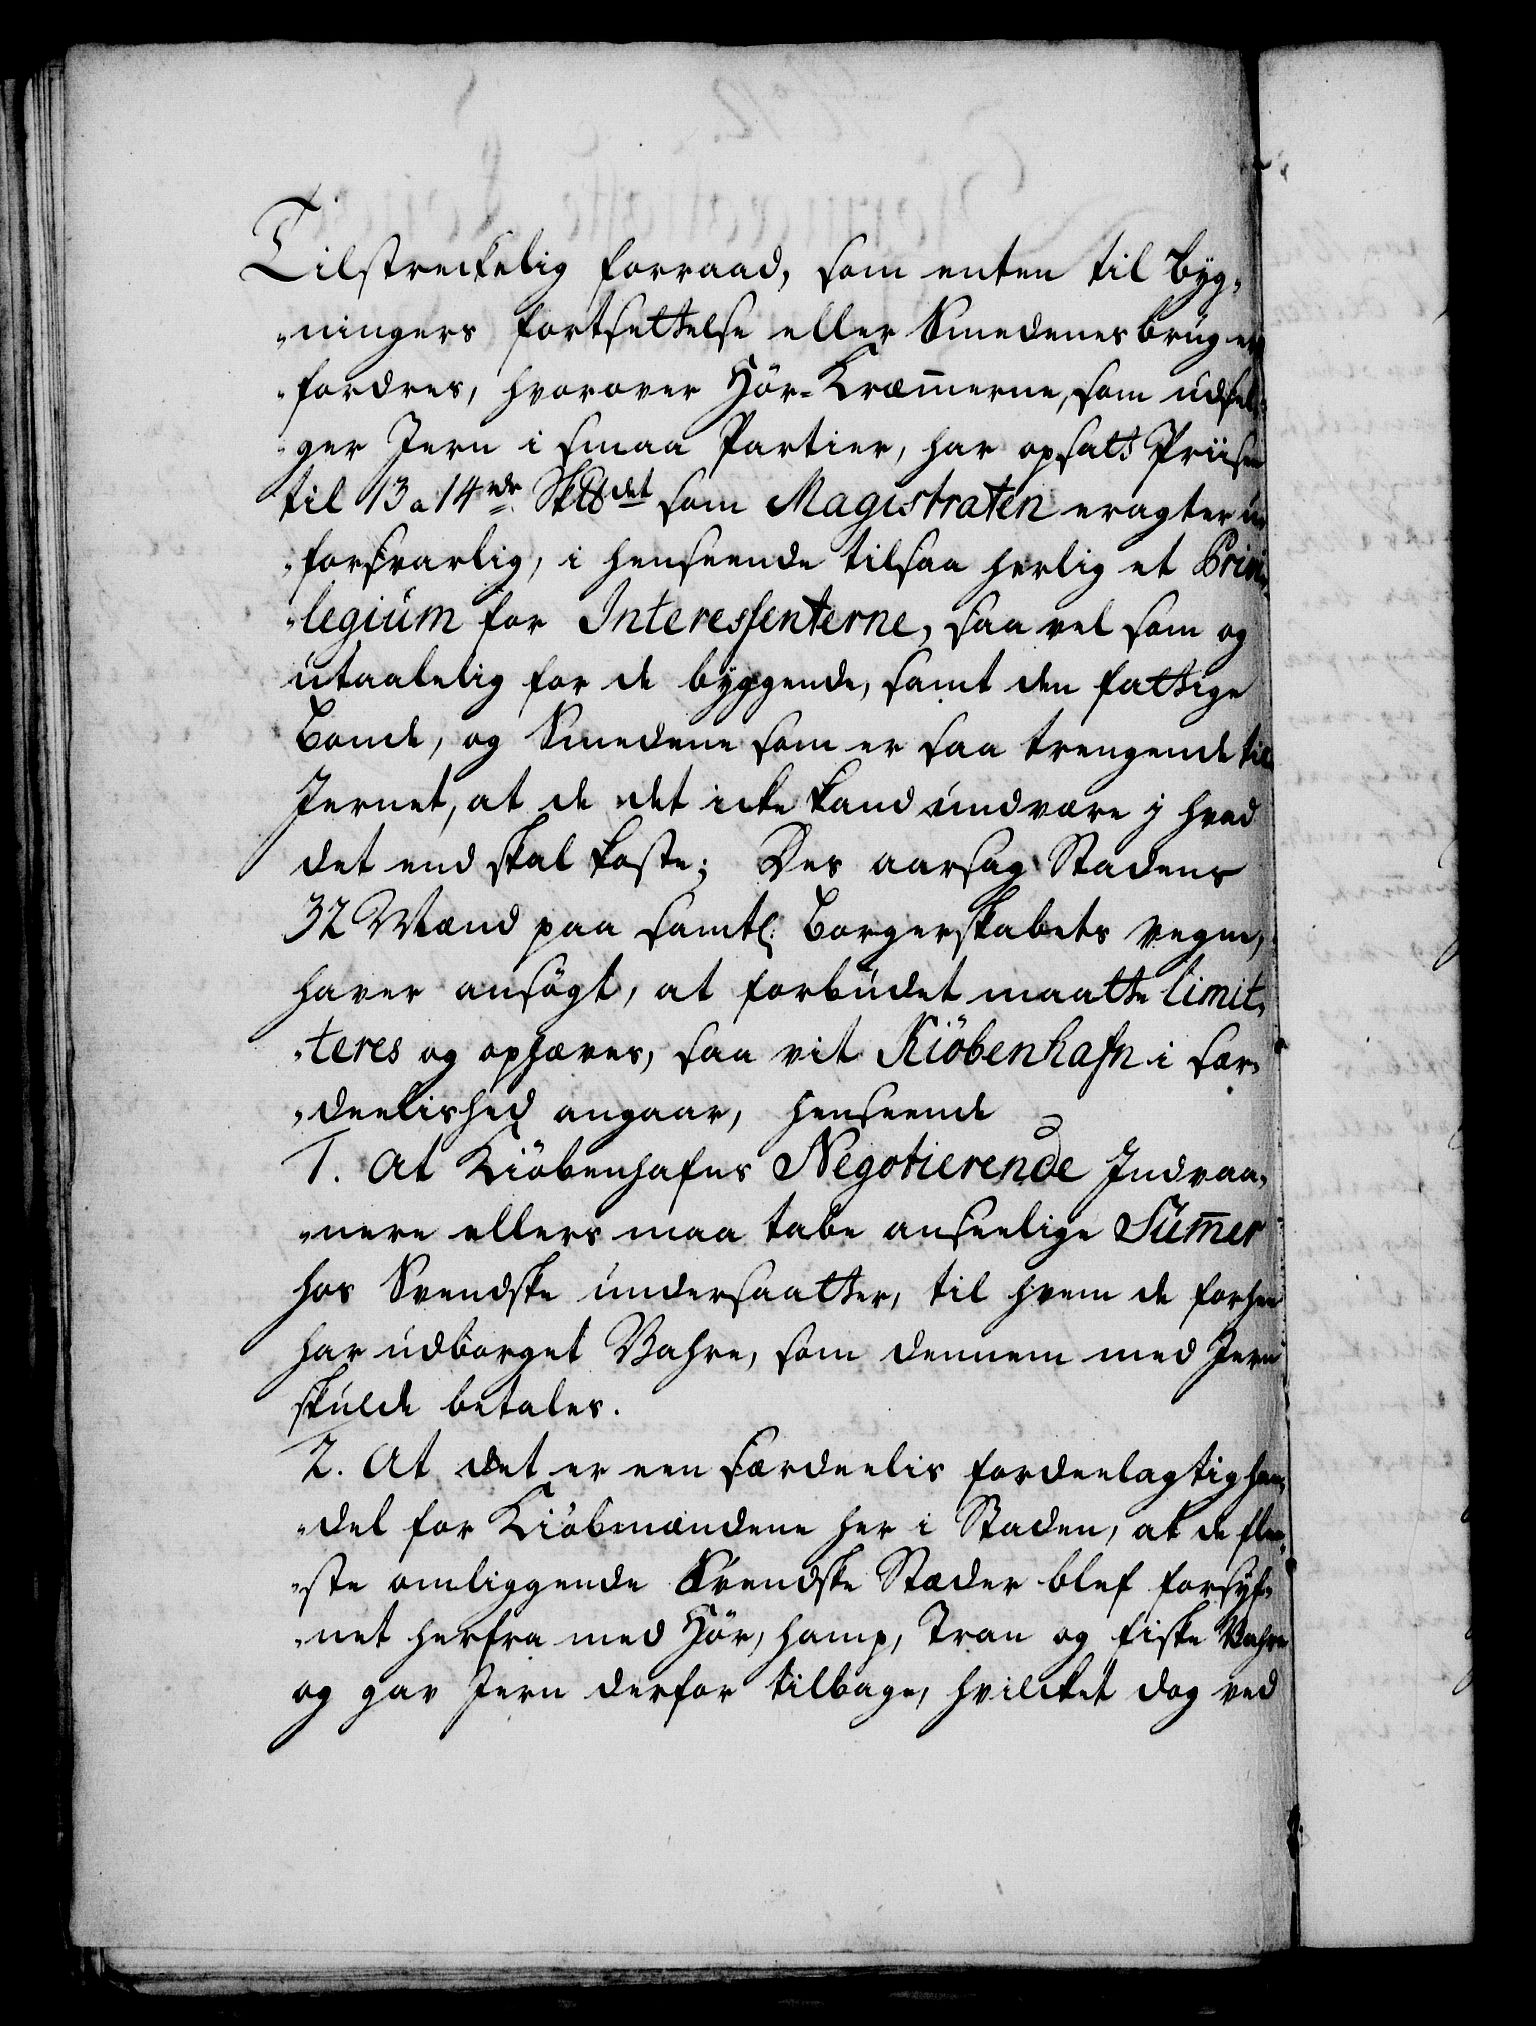 Tilstreckelig forraad, som enten til byg-
-ningers fortsettelse eller Smedenes brug er-
-fordres, hvorover Hör-Kræm̄erne, som udsæl-
-ger Jern i smaa Partier, har opsatt Priisen
til 13 a 14 rdr Sk℔det som Magistraten eragter u-
-forsvarlig, i henseende tilsaa herlig et Privi-
-legium for Interessenterne, saa vel som og
utaalelig for de byggende, samt den fattige
Bonde, og Smedene som er saa trengende til
Jernet, at de det icke kand undvære j hvad
det end skal koste; Des aarsag Stadens
32 Mænd paa samtl: Borgerskabets vegne,
haver ansögt, at forbudet maatte limit-
-teres og ophæves, saa vit Kiöbenhafn i sær-
-deelished angaar, henseende
1. At Kiöbenhafns Negotierende Indvaa-
-nere ellers maa tabe anseelige Sum̄er
hos Svendske undersaatter, til hvem de forhen
har udborget Vahre, som dennem med Jern
skulde betales.
2. At det er een særdeelis fordeelagtig han-
-del for Kiöbmændene her i Staden, at de flee-
-ste omliggende Svendske Stæder blef forsyf-
-net herfra med Hör, hamp, Tran og fiske Vahre
og gav Jern derfor tilbage, hvilcket dog ved